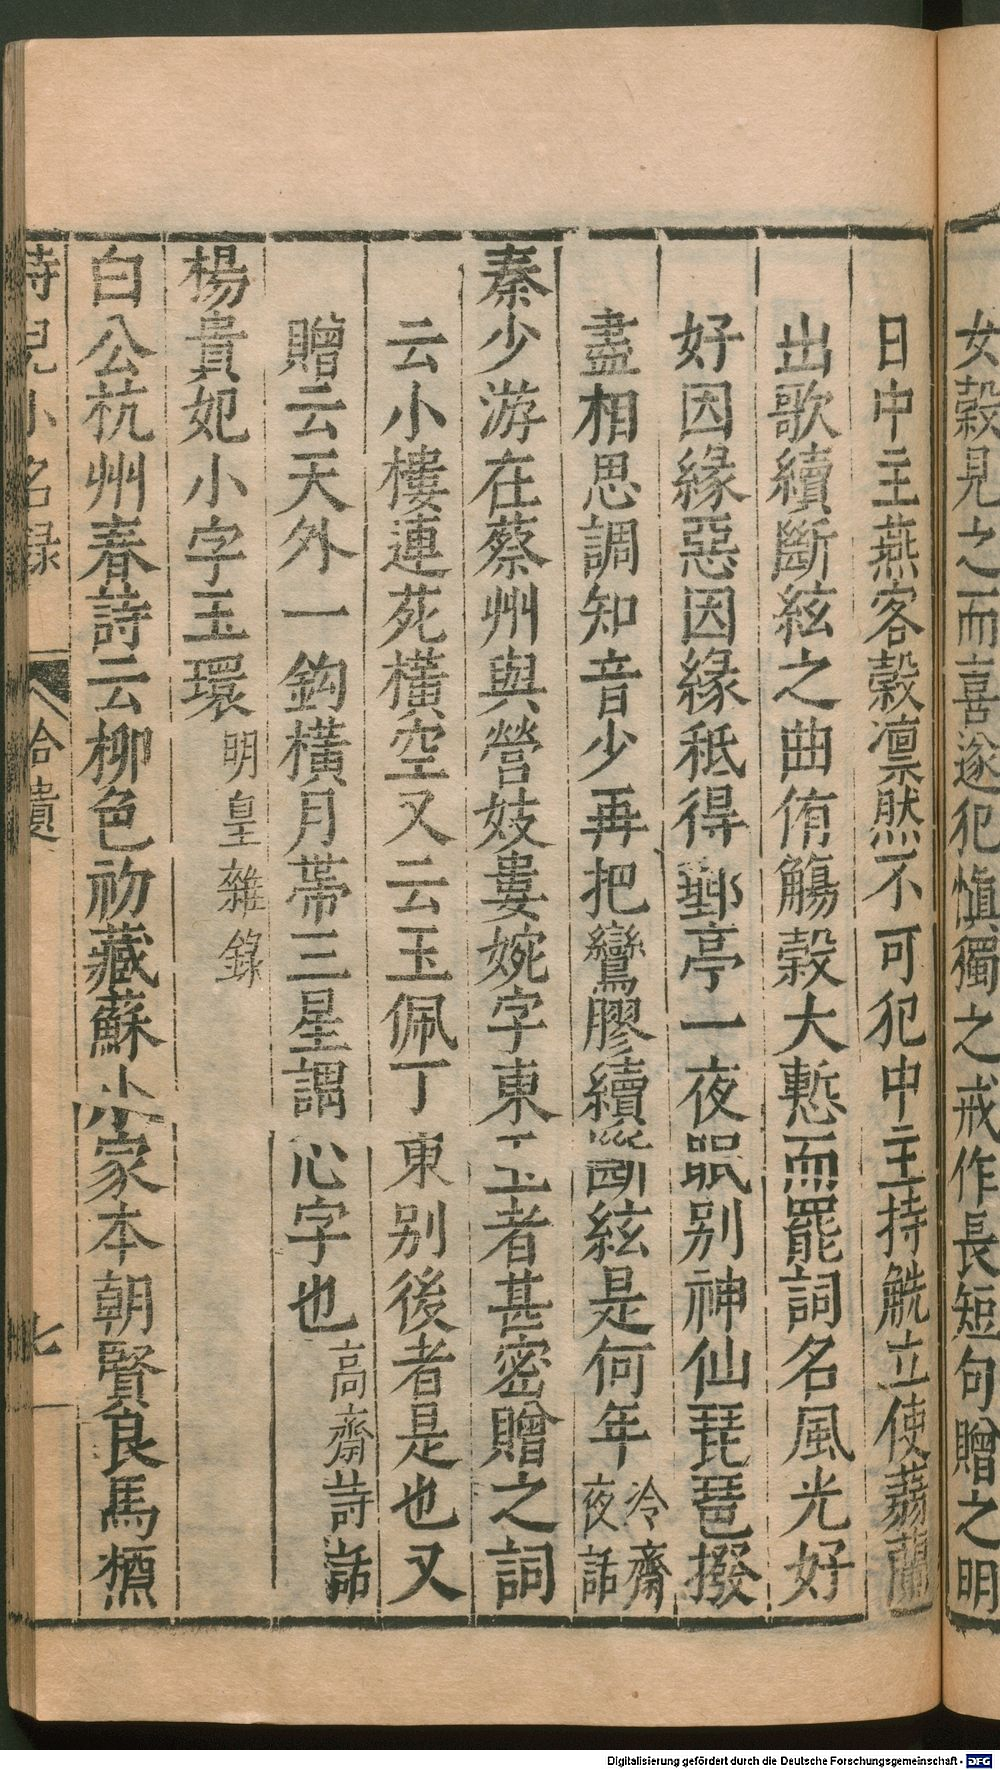 女榖見之而喜遂犯愼獨之戒作長短句贈之明
日中主燕客榖凛然不可犯中主持觥立使蒻蘭
出歌續斷絃之曲侑觴榖大慙而罷詞名風光好
好因緣惡因緣秪得郵亭一夜眠别神仙琵琶撥
盡相思調知音少再把鸞膠續斷絃是何年 冷齋
夜話
秦少游在蔡州與營妓婁婉字東玉者甚密贈之詞
云小樓連苑橫空又云玉佩丁東别後者是也又
贈云天外一鈎橫月帶三星謂心字也 高齋詩話
楊貴妃小字玉環 明皇雜錄
白公杭州春詩云柳色初藏蘇小家本朝賢良馬槱
侍兒小名録 拾遺 七
Digitalisierung gefördert durch die Deutsche Forschungsgemeinschaft - DFG